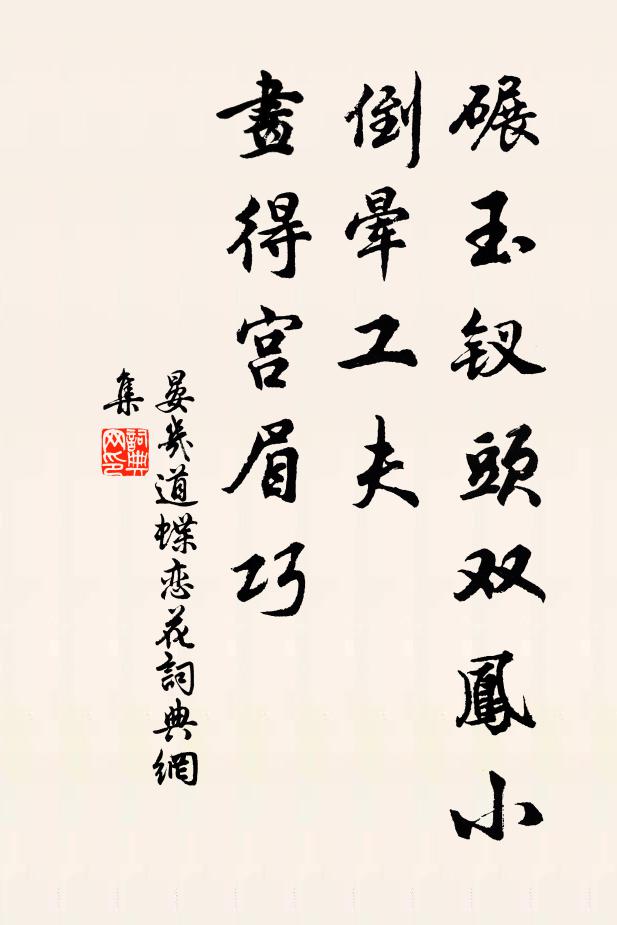 碾玉钗頭双鳳小
倒暈工夫
畫得宫眉巧
晏幾道蝶恋花詞典網
集
詞典
网印